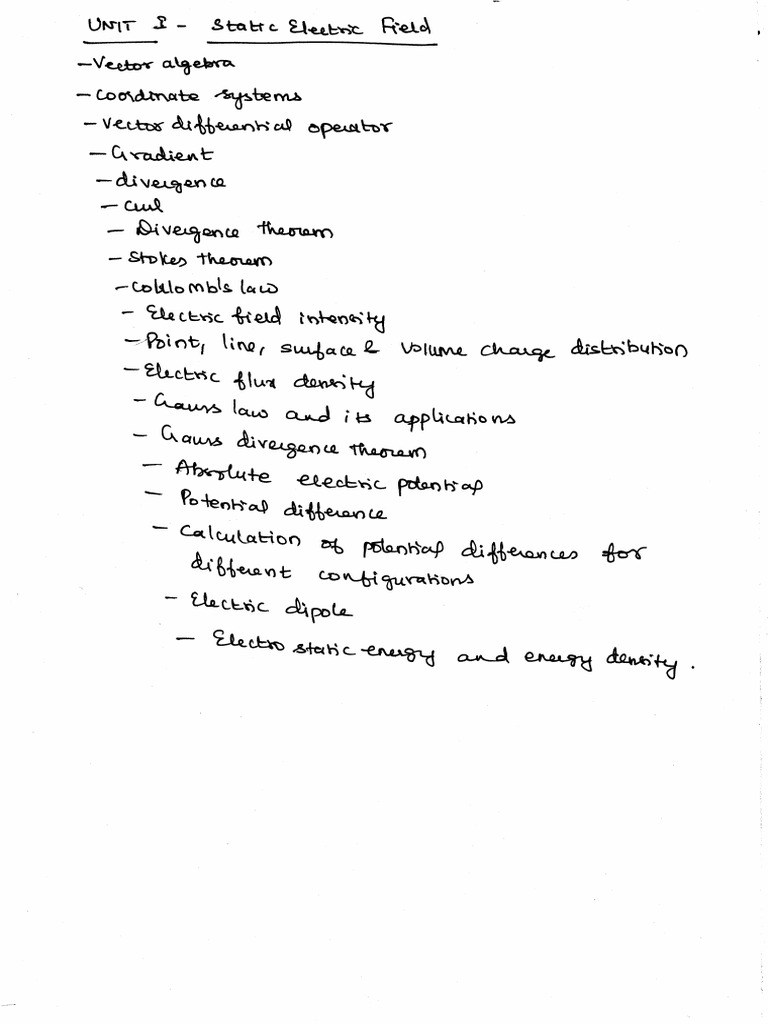 UNIT I - Static Electric Field
- Vector algebra
- Coordinate systems
- Vector differential operator
- Gradient
- divergence
- curl
- Divergence theorem
- Stokes theorem
- Coulomb's law
- Electric field intensity
- Point, line, surface & volume charge distribution
- Electric flux density
- Gauss law and its applications
- Gauss divergence theorem
- Absolute electric potential
- Potential difference
- Calculation of potential differences for
different configurations
- Electric dipole
- Electro static energy and energy density.